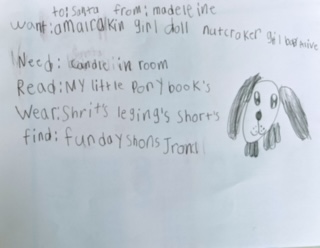 to: santa from: madeleine
want: amairakin girl doll nutcraker
Need: candle in room
Read: MY little Pony book's
Wear: Shrits leging's short's
find: fun day shons